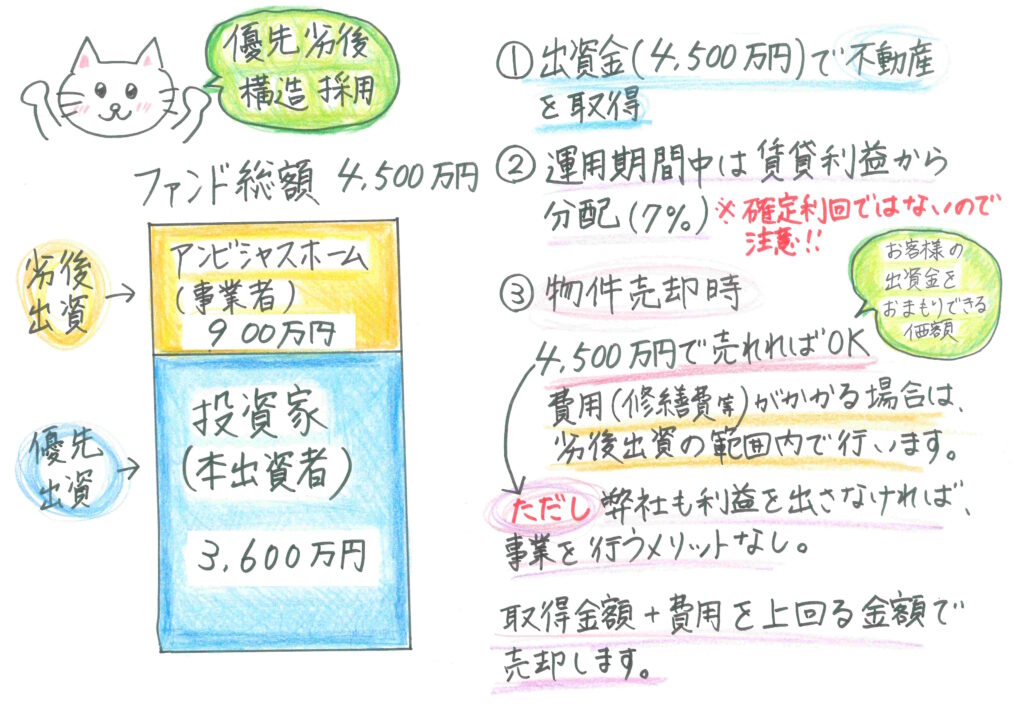 優先劣後
構造採用
ファンド総額 4,500万円
劣後
出資
アンビシャスホーム
(事業者)
900万円
優先
出資
投資家
(本出資者)
3,600万円
① 出資金(4,500万円)で不動産
を取得
② 運用期間中は賃貸利益から
分配(7%)
※確定利回ではないので
注意!!
③ 物件売却時
お客様の
出資金を
おまもりできる
価額
4,500万円で売れればOK
費用(修繕費等)がかかる場合は、
劣後出資の範囲内で行います。
ただし 弊社も利益を出さなければ、
事業を行うメリットなし。
取得金額+費用を上回る金額で
売却します。